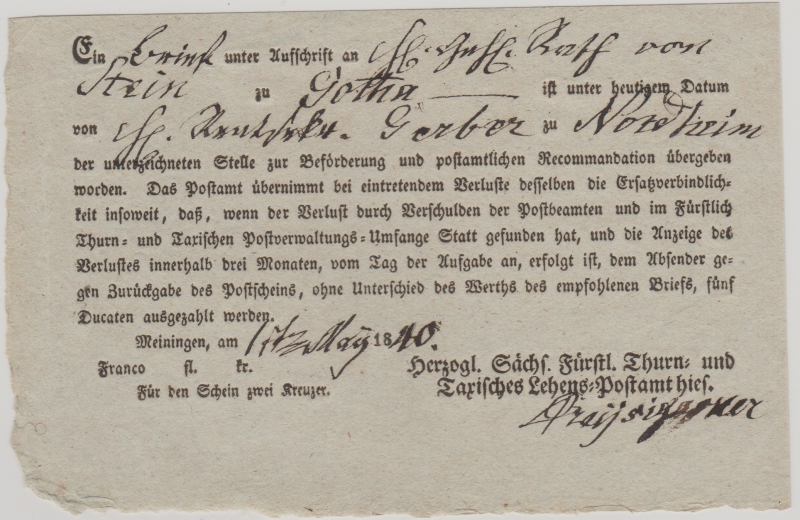 Ein Brief unter Aufschrift an H. Geh. Rath von
Stein zu Gotha ist unter heutigem Datum
von H. Gerber zu Nordheim
der unterzeichneten Stelle zur Beförderung und postamtlichen Recommandation übergeben
worden. Das Postamt übernimmt bei eintretendem Verluste desselben die Ersatzverbindlich-
keit insoweit, daß, wenn der Verlust durch Verschulden der Postbeamten und im Fürstlich
Thurn- und Taxischen Postverwaltungs-Umfange Statt gefunden hat, und die Anzeige des
Verlustes innerhalb drei Monaten, vom Tag der Aufgabe an, erfolgt ist, dem Absender ge-
gen Zurückgabe des Postscheins, ohne Unterschied des Werths des empfohlenen Briefs, fünf
Ducaten ausgezahlt werden.
Meiningen, am May 1840.
Franco fl. kr. Herzogl. Sächs. Fürstl. Thurn- und
Für den Schein zwei Kreuzer. Taxisches Lehens-Postamt hies.